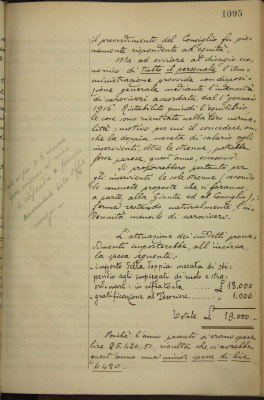 1095
il provvedimento del Consiglio fu pie-
namente rispondente ad equità.
Ma ad ovviare al disagio eco-
nomico di tutto il personale l'Am-
ministrazione provvide con disposi-
zione generale mediante l'indennità
di caroviveri accordata dal 1° gennaio
1916. Ristabilito quindi l'equilibrio
le cose sono rientrate nella loro norma-
lità; motivo per cui il concedere an-
che la doppia mesata di salario agli
inservienti, oltre le strenne, potrebbe
forse parere, quest'anno, eccessivo.
Si proporrebbero pertanto per
gli inservienti le sole strenne (secondo
le concrete proposte che si faranno,
a parte, alla Giunta ed al Consiglio),
ferma restando naturalmente l'in-
dennità mensile di caroviveri.
L'attuazione dei suddetti prov-
vedimenti importerebbe all'incirca
la spesa seguente:
- importo della doppia mesata di sti-
pendio agli impiegati di ruolo e stra-
ordinari - in cifra tonda £ 18.000
- gratificazione al Tesoriere " 1.000
Totale £ 19.000
Poiché l'anno passato si erano spese
lire 25.420,51, risulta che si avrebbe
quest'anno una minor spesa di lire
6420.